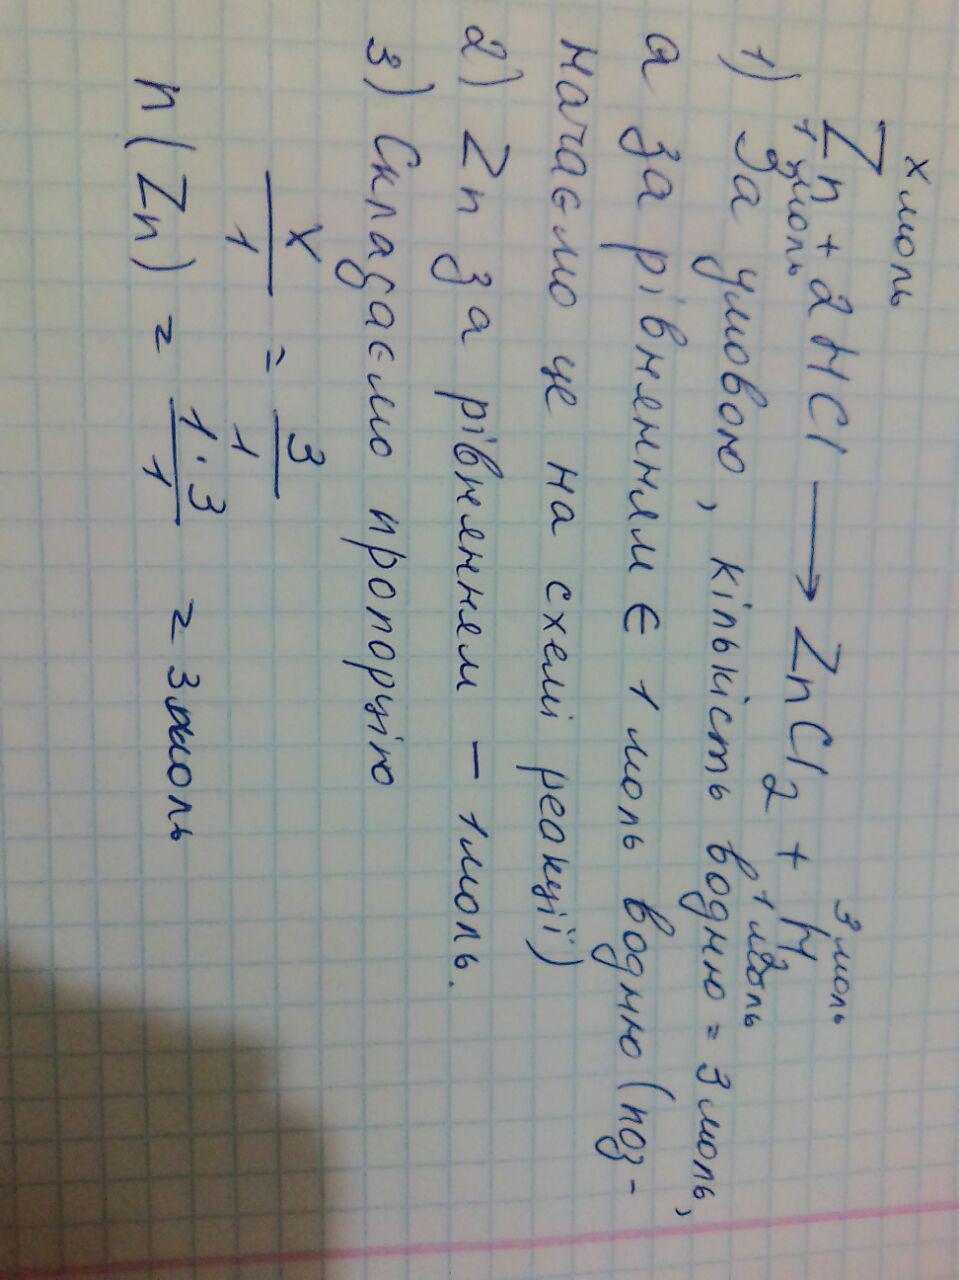 х моль 3 моль
Zn + 2HCl → ZnCl₂ + H₂
1 моль 1 моль
1) За умовою, кількість водню = 3 моль,
а за рівненням є 1 моль водню (поз-
начаємо це на схемі реакції)
2) Zn за рівненнем – 1 моль.
3) Складаємо пропорцію
x/1 = 3/1
n(Zn) = 1·3/1 = 3 моль